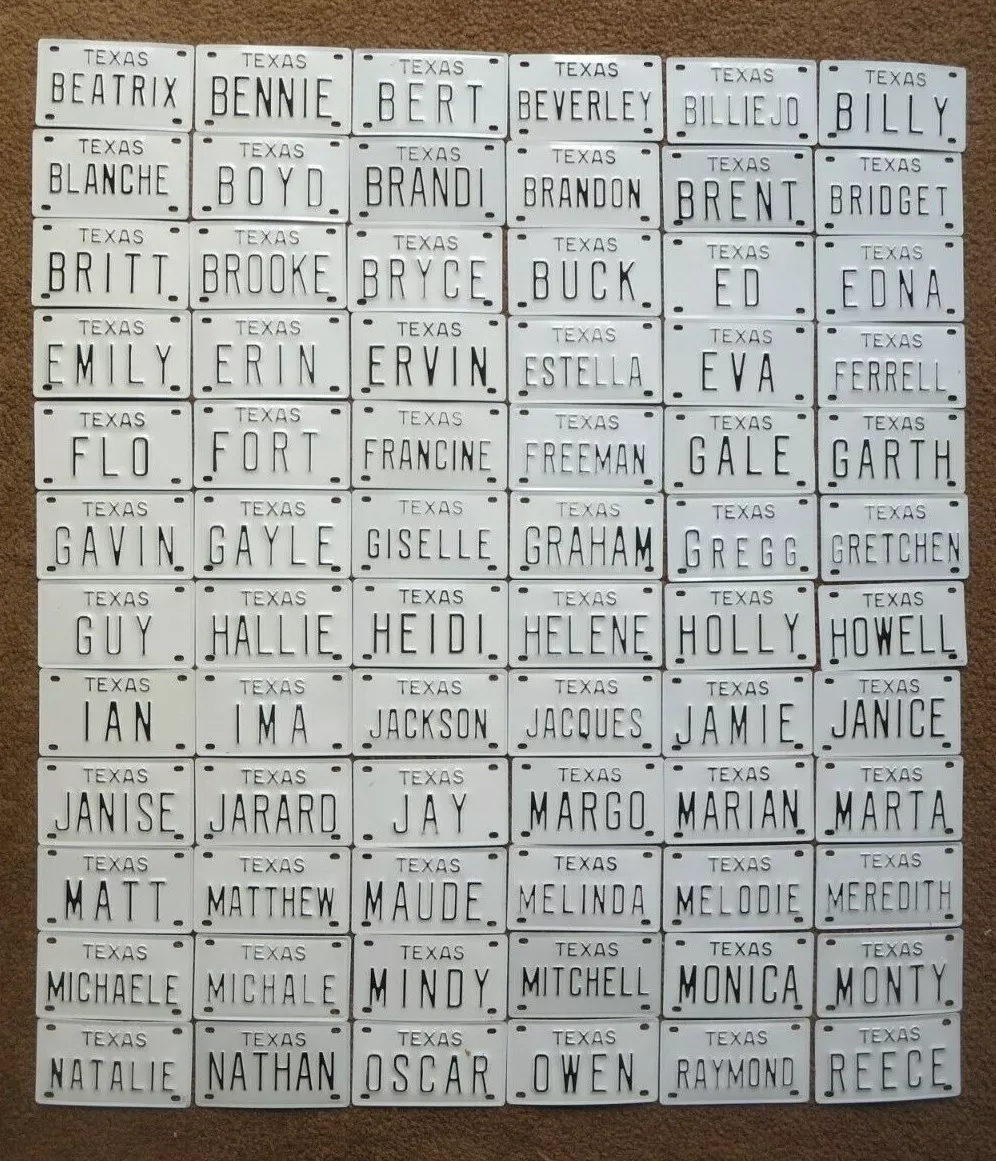 TEXAS TEXAS TEXAS TEXAS TEXAS TEXAS
BEATRIX BENNIE BERT BEVERLEY BILLIEJO BILLY
TEXAS TEXAS TEXAS TEXAS TEXAS TEXAS
BLANCHE BOYD BRANDI BRANDON BRENT BRIDGET
TEXAS TEXAS TEXAS TEXAS TEXAS TEXAS
BRITT BROOKE BRYCE BUCK ED EDNA
TEXAS TEXAS TEXAS TEXAS TEXAS TEXAS
EMILY ERIN ERVIN ESTELLA EVA FERRELL
TEXAS TEXAS TEXAS TEXAS TEXAS TEXAS
FLO FORT FRANCINE FREEMAN GALE GARTH
TEXAS TEXAS TEXAS TEXAS TEXAS TEXAS
GAVIN GAYLE GISELLE GRAHAM GREGG GRETCHEN
TEXAS TEXAS TEXAS TEXAS TEXAS TEXAS
GUY HALLIE HEIDI HELENE HOLLY HOWELL
TEXAS TEXAS TEXAS TEXAS TEXAS TEXAS
IAN IMA JACKSON JACQUES JAMIE JANICE
TEXAS TEXAS TEXAS TEXAS TEXAS TEXAS
JANISE JARARD JAY MARGO MARIAN MARTA
TEXAS TEXAS TEXAS TEXAS TEXAS TEXAS
MATT MATTHEW MAUDE MELINDA MELODIE MEREDITH
TEXAS TEXAS TEXAS TEXAS TEXAS TEXAS
MICHAELE MICHALE MINDY MITCHELL MONICA MONTY
TEXAS TEXAS TEXAS TEXAS TEXAS TEXAS
NATALIE NATHAN OSCAR OWEN RAYMOND REECE